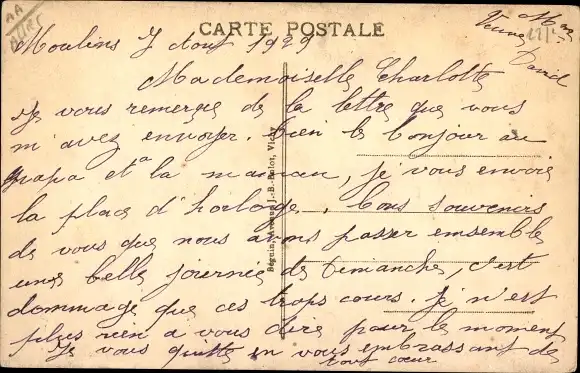 CARTE POSTALE
Moulins 7 Aout 1929
Mme
Veuve
David
Mademoiselle Charlotte
Je vous remerçie de la lettre que vous
m'avez envoyer. bien le bonjour au
papa et a la maman, je vous envoie
la place d'horloge. bons souvenirs
de vous que nous avons passer ensemble
une belle journée de Dimanche, c'est
dommage que ces trops cours. Je n'est
plus rien a vous dire pour le moment
Je vous quitte en vous embrassant de
tout cœur
Béguin, J.-B. Vichy